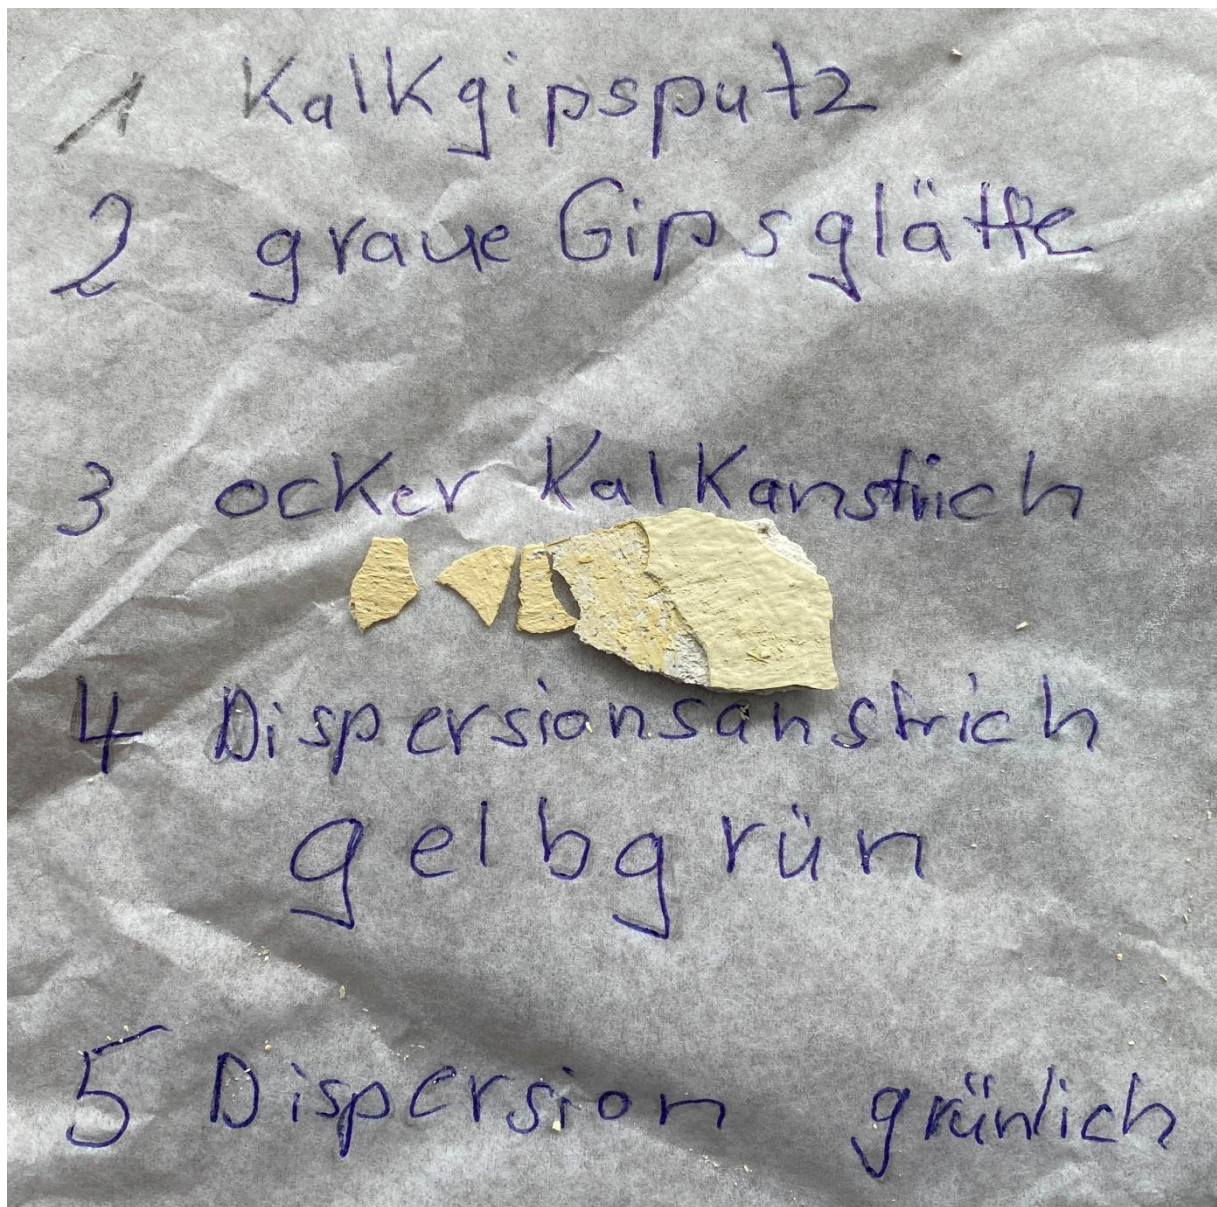 1 Kalkgipsputz
2 graue Gipsglätte
3 ocker Kalkanstrich
4 Dispersionsanstrich
gelbgrün
5 Dispersion grünlich